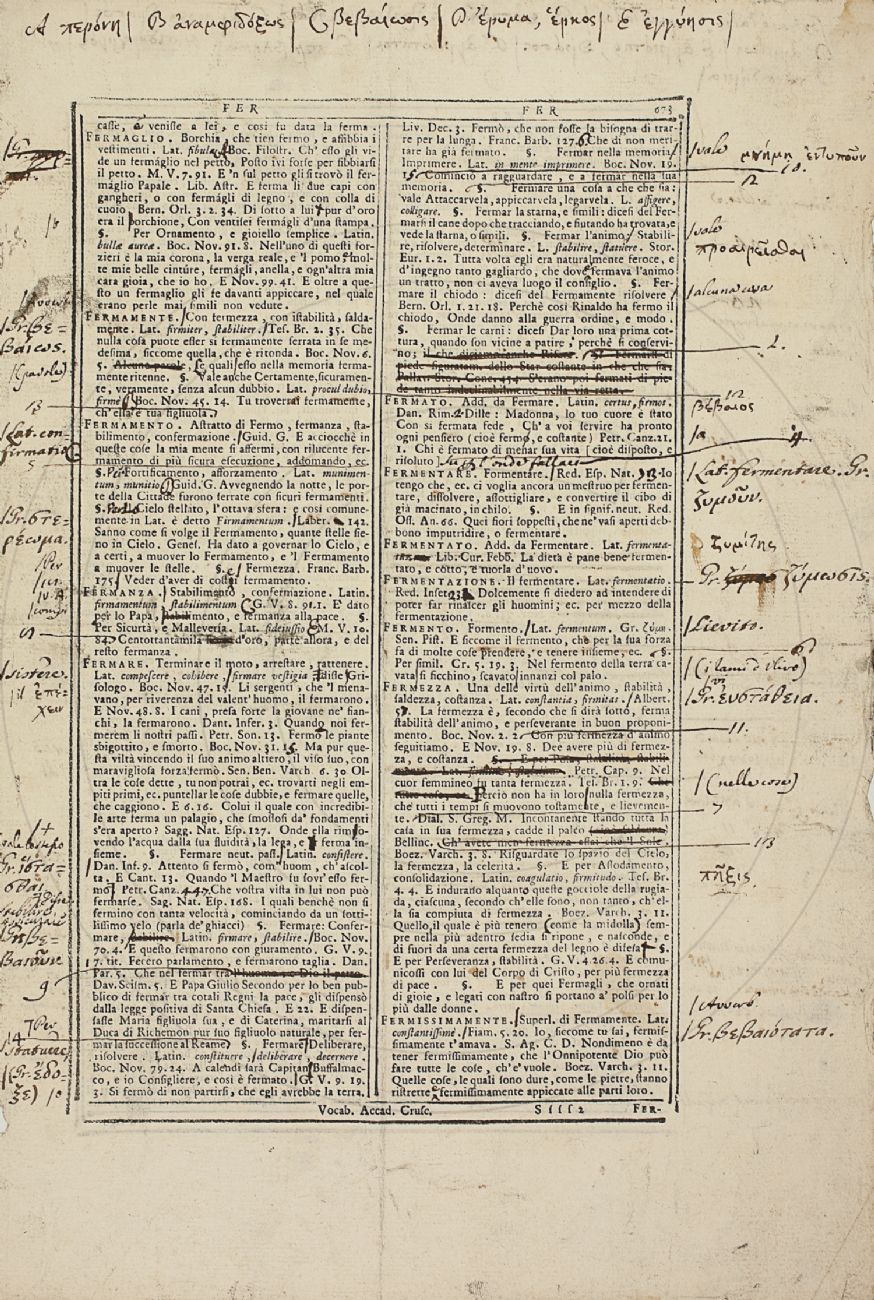 A περόνη | B ἀναμφιδόξως | C βεβαίωσις | D ἔρυμα, ἕρκος | E ἐγγύησις
FER
FER 673
casse, e venisse a lei, e così fu data la ferma.
FERMAGLIO. Borchia, che tien fermo, e affibbia i
vestimenti. Lat. fibula. Boc. Filostr. Ch' esso gli vi-
de un fermáglio nel petto, Posto ivi forse per fibbiarsi
il petto. M. V. 7. 91. E 'n sul petto gli si trovò il fer-
máglio Papale. Lib. Astr. E ferma li due capi con
gangheri, o con fermágli di legno, e con colla di
cuoio. Bern. Orl. 3. 2. 34. Di sotto a lui pur d'oro
era il borchione, Con ventisei fermágli d'una stampa.
§. Per Ornamento, e gioiello semplice. Latin.
bullæ aureæ. Boc. Nov. 91. 8. Nell'uno di questi for-
zieri è la mia corona, la verga reale, e 'l pomo e mol-
te mie belle cintúre, fermágli, anella, e ogn'altra mia
cara gioia, che io ho, E Nov. 99. 41. E oltre a que-
sto un fermaglio gli fe davanti appiccare, nel quale
erano perle mai, simili non vedute.
FERMAMENTE. Con fermezza, con istabilità, salda-
mente. Lat. firmiter, stabiliter. Tes. Br. 2. 35. Che
nulla cosa puote esser si fermamente serrata in se me-
desima, siccome quella, che è ritonda. Boc. Nov. 6.
5. Alcuna parola, se quali esso nella memoria ferma-
mente ritenne. §. Vale anche Certamente, sicuramen-
te, veramente, senza alcun dubbio. Lat. procul dubio,
firmè. Boc. Nov. 45. 14. Tu troverai fermamente,
ch' ella è tua figliuola.
FERMAMENTO. Astratto di Fermo, fermanza, sta-
bilimento, confermazione. Guid. G. E acciocchè in
queste cose la mia mente si affermi, con rilucente fer-
mamento di più sicura esecuzione, addomando, ec.
§. Per Fortificamento, afforzamento. Lat. munimen-
tum, munitio. Guid. G. Avvegnendo la notte, le por-
te della Cittade furono serrate con sicuri fermamenti.
§. Per lo Cielo stellato, l'ottava sfera: e così comune-
mente in Lat. è detto Firmamentum. Laber. 142.
Sanno come si volge il Fermamento, quante stelle sie-
no in Cielo. Genes. Ha dato a governar lo Cielo, e
a certi, a muover lo Fermamento, e 'l Fermamento
a muover le stelle. §. Fermezza. Franc. Barb.
175. Veder d'aver di costui fermamento.
FERMANZA. Stabilimento, confermazione. Latin.
firmamentum, stabilimentum. G. V. 8. 91. 1. E dato
per lo Papa, stabilimento, e fermanza alla pace. §.
Per Sicurtà, e Malleveria. Lat. fideiussio. M. V. 10.
84. Centottantamila d'oro, parte allora, e del
resto fermanza.
FERMARE. Terminare il moto, arrestare, rattenere.
Lat. compescere, cohibere, firmare vestigia sistere. Gri-
sologo. Boc. Nov. 47. 15. Li sergenti, che 'l mena-
vano, per riverenza del valent' huomo, il fermarono.
E Nov. 48. 8. I cani, presa forte la giovane ne' fian-
chi, la fermarono. Dant. Infer. 3. Quando noi fer-
merem li nostri passi. Petr. Son. 13. Fermo le piante
sbigottito, e smorto. Boc. Nov. 31. 15. Ma pur que-
sta viltà vincendo il suo animo altiero, il viso suo, con
maravigliosa forza fermò. Sen. Ben. Varch. 6. 30 Ol-
tra le cose dette, tu non potrai, ec. trovarti negli em-
piti primi, ec. puntellar le cose dubbie, e fermare quelle,
che caggiono. E 6. 16. Colui il quale con incredibi-
le arte ferma un palagio, che smossosi da' fondamenti
s'era aperto? Sagg. Nat. Esp. 127. Onde ella rimo-
vendo l'acqua dalla sua fluidità, la lega, e ferma in-
sieme. §. Fermare neut. pass. Latin. consistere.
Dan. Inf. 9. Attento si fermò, com' huom, ch'ascol-
ta. E Cant. 13. Quando 'l Maestro fu sovr' esso fer-
mo. Petr. Canz. 4. 7. Che vostra vista in lui non può
fermarse. Sag. Nat. Esp. 168. I quali benchè non si
fermino con tanta velocità, cominciando da un sotti-
lissimo velo (parla de' ghiacci) §. Fermare: Confer-
mare, stabilire. Latin. firmare, stabilire. Boc. Nov.
70. 4. E questo fermarono con giuramento. G. V. 9.
17. tit. Fecero parlamento, e fermarono taglia. Dan.
Par. 5. Che nel fermar tra l'huomo, e Dio il patto.
Dav. Scism. 5. E Papa Giulio Secondo per lo ben pu-
blico di fermar tra cotali Regni la pace, gli dispensò
dalla legge positiva di Santa Chiesa. E 22. E dispen-
sasse Maria figliuola sua, e di Caterina, maritarsi al
Duca di Richemon pur suo figliuolo naturale, per fer-
mar la successione al Reame. §. Fermare Deliberare,
risolvere. Latin. constituere, deliberare, decernere.
Boc. Nov. 79. 24. A calendi sarà Capitan Buffalmac-
co, e io Consigliere, e così è fermato. G. V. 9. 19.
3. Si fermò di non partirsi, che egli avrebbe la terra.
Liv. Dec. 3. Fermò, che non fosse la bisogna di trar-
re per la lunga. Franc. Barb. 127. 6. Che di non meri-
tare ha già fermato. §. Fermar nella memoria
Imprimere. Lat. in mente imprimere. Boc. Nov. 19.
15. Cominciò a ragguardare, e a fermar nella sua
memoria. §. Fermare una cosa a che che sia:
vale Attaccarvela, appiccarvela, legarvela. L. affigere,
colligare. §. Fermar la starna, e simili: dicesi del Fer-
marsi il cane dopo che tracciando, e fiutando ha trovata, e
vede la starna, o simili. §. Fermar l'animo Stabili-
re, risolvere, determinare. L. stabilire, statuere. Stor.
Eur. 1. 2. Tutta volta egli era naturalmente feroce, e
d'ingegno tanto gagliardo, che dove fermava l'animo
un tratto, non ci aveva luogo il consiglio. §. Fer-
mare il chiodo: dicesi del Fermamente risolvere
Bern. Orl. 1. 21. 18. Perchè così Rinaldo ha fermo il
chiodo, Onde danno alla guerra ordine, e modo.
§. Fermare le carni: dicesi Dar loro una prima cot-
tura, quando son vicine a patire, perchè si conservi-
no; il che diciamo anche Rifare. §. Fermarsi di
piede figuratam. dello Star costante in che che sia.
Pallav. Stor. Conc. 454. S'erano poi fermati di pie-
de tanto immobilmente nella via retta.
FERMATO. Add. da Fermare. Latin. certus, firmus.
Dan. Rim. 2. Dille: Madonna, lo tuo cuore è stato
Con si fermata fede, Ch' a voi servire ha pronto
ogni pensiero (cioè fermo, e costante) Petr. Canz. 21.
1. Chi è fermato di menar sua vita [cioè disposto, e
risoluto] Su per l'onde fallaci
FERMENTARE. Formentare. Red. Esp. Nat. 93. Io
tengo che, ec. ci voglia ancora un mestruo per fermen-
tare, dissolvere, assottigliare, e convertire il cibo di
già macinato, in chilo. §. E in signif. neut. Red.
Oss. An. 66. Quei fiori soppesti, che ne' vasi aperti deb-
bono imputridire, o fermentare.
FERMENTATO. Add. da Fermentare. Lat. fermenta-
Lib. Cur. Febb. La dietà è pane bene fermen-
tato, e cotto, e tuorla d'uovo.
FERMENTAZIONE. Il fermentare. Lat. fermentatio.
Red. Inset. 23. Dolcemente si diedero ad intendere di
poter far rinascer gli huomini; ec. per mezzo della
fermentazione.
FERMENTO. Formento. Lat. fermentum. Gr. ζύμη.
Sen. Pist. E siccome il fermento, che per la sua forza
fa di molte cose prendere, e tenere insieme, ec. §.
Per simil. Cr. 5. 19. 3. Nel fermento della terra ca-
vata si ficchino, scavato innanzi col palo.
FERMEZZA. Una delle virtù dell'animo, stabilità,
saldezza, costanza. Lat. constantia, firmitas. Albert.
57. La fermezza è, secondo che si dirà sotto, ferma
stabilità dell'animo, e perseverante in buon proponi-
mento. Boc. Nov. 2. 2. Con più fermezza d'animo
seguitiamo. E Nov. 19. 8. Dee avere più di fermez-
za, e costanza. §. E per Posa, stabilità, stabili-
mento. Petr. Cap. 9. Nel
cuor femmineo fu tanta fermezza. Tes. Br. 1. 9. Che
perciò non ha in loro nulla fermezza,
che tutti i tempi si muovono tostamente, e lievemen-
te. Dial. S. Greg. M. Incontanente stando tutta la
casa in sua fermezza, cadde il palco
Bellinc. Ch'avete men fermezza assai che 'l Sole.
Boez. Varch. 3. 8. Risguardate lo spazio del Cielo,
la fermezza, la celerità. §. E per Assodamento,
consolidazione. Latin. coagulatio, firmitudo. Tes. Br.
4. 4. E indurano alquanto queste gocciole della rugia-
da, ciascuna, secondo ch'elle sono, non tanto, ch'el-
la sia compiuta di fermezza. Boez. Varch. 3. 11.
Quello, il quale è più tenero (come la midolla) sem-
pre nella più adentro sedia si ripone, e nasconde, e
di fuori da una certa fermezza del legno è difesa. §.
E per Perseveranza, stabilità. G. V. 4. 26. 4. E comu-
nicossi con lui del Corpo di Cristo, per più fermezza
di pace. §. E per quei Fermagli, che ornati
di gioie, e legati con nastro si portano a' polsi per lo
più dalle donne.
FERMISSIMAMENTE. Superl. di Fermamente. Lat.
constantissimè. Fiam. 5. 20. Io, siccome tu sai, fermis-
simamente t'amava. S. Ag. C. D. Nondimeno è da
tener fermissimamente, che l'Onnipotente Dio può
fare tutte le cose, ch'e' vuole. Boez. Varch. 3. 11.
Quelle cose, le quali sono dure, come le pietre, stanno
ristrette fermissimamente appiccate alle parti loro.
Vocab. Accad. Crusc.
Sfff 2
FER-
Gr. βε-
βαίως.
(parola)
13
Lat. con-
firmatio
5
Gr. στε-
ρέωμα.
sistere.
il ἐπέ-
χειν
Gr. ἵστα-
σθαι
9
14
Per
statuire
(Gr. ἔδο-
ξε) 10
vale
μνήμῃ ἐντυποῦν
10
12
vale
προαιρεῖσθαι
alcuna cosa
2.
12
βέβαιος
a
4
Lat. fermentare. Gr.
ζυμοῦν.
ζυμίτης
Gr. ζύμωσις.
Lievito.
6
(i rami d'ulivo)
Gr. εὐστάθεια.
11.
(nelle cose)
7
13
πῆξις
Avverb.
Gr. βεβαιότατα.